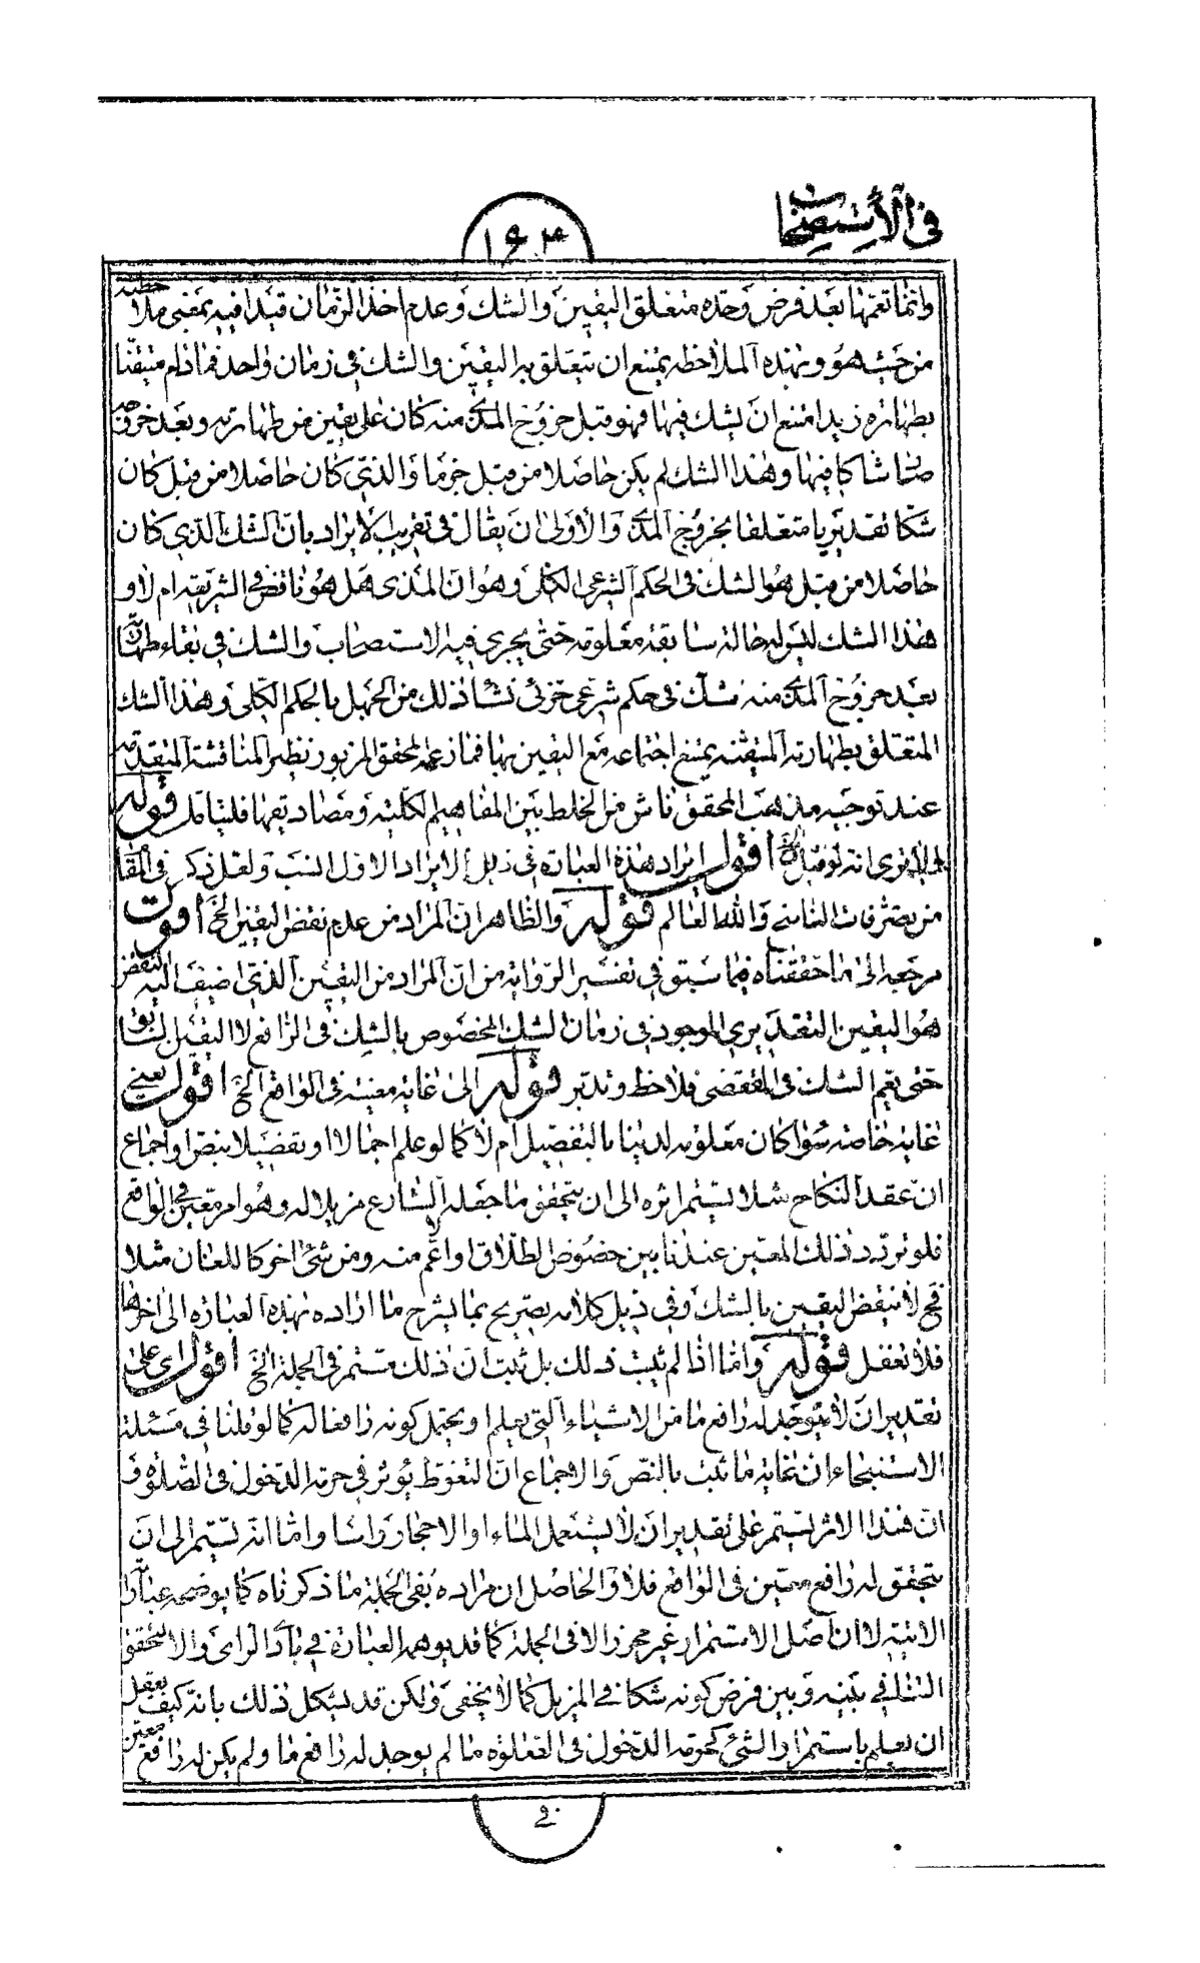 في الاستصحاب
١٦٣
وانما تعمها بعد فرض وحده متعلق اليقين والشك وعدم اخذ الزمان قيدا فيه بمعنى ملاحظته
من حيث هو وبهذه الملاحظه يمتنع ان يتعلق به اليقين والشك في زمان واحد فمادام متيقنا
بطهاره زيد امتنع ان يشك فيها فهو قبل خروج المذى منه كان على يقين من طهارته وبعد خروجه
صار شاكا فيها وهذا الشك لم يكن حاصلا من قبل جزما والذي كان حاصلا من قبل كان
شكا تقديريا متعلقا بخروج المذى والاولى ان يقال في تقريب الايراد بان الشك الذي كان
حاصلا من قبل هو الشك في الحكم الشرعي الكلى وهو ان المذى هل هو ناقض في الشريعه ام لا و
هذا الشك ليس له حالة سابقه معلومة حتى يجري فيه الاستصحاب والشك في بقاء طهارته
بعد خروج المذى منه شك في حكم شرعي جزئى نشأ ذلك من الجهل بالحكم الكلى وهذا الشك
المتعلق بطهارته المتيقنه يمتنع اجتماعه مع اليقين بها فما زعمه المحقق المزبور نظير المناقشة المتقدمه
عند توجيه مذهب المحقق ناش من الخلط بين المفاهيم الكليه ومصاديقها فليتامل قوله
الا ترى انه لو قيل الخ اقول ايراد هذه العبارة في ذيل الايراد الاول انسب ولعل ذكره في المقام
من تصرفات الناسخ والله العالم قوله والظاهر ان المراد من عدم نقض اليقين الخ اقول
مرجعه الى ما حققناه فيما سبق في تفسير الرواية من ان المراد من اليقين الذي اضيف اليه النقض
هو اليقين التقديري الموجود في زمان الشك المخصوص بالشك في الرافع لا اليقين السابق
حتى يعم الشك في المقتضى فلاحظ وتدبر قوله الى غاية معينة في الواقع الخ اقول يعنى
غاية خاصة سواء كان معلومة لدينا بالتفصيل ام لا كما لو علم اجمالا او تفصيلا بنص او اجماع
ان عقد النكاح مثلا يستمر اثره الى ان يتحقق ما جعله الشارع مزيلا له وهو امر معين في الواقع
فلو تردد ذلك المعين عندنا بين خصوص الطلاق او اعم منه ومن شئ اخر كاللعان مثلا
فح لا ينقض اليقين بالشك وفي ذيل كلامه تصريح بما يشرح ما اراده بهذه العبارة الى اخرها
فلا تغفل قوله واما اذا لم يثبت ذلك بل ثبت ان ذلك مستمر في الجملة الخ اقول اى على
تقدير ان لا يوجد له رافع ما من الاشياء التي يعلم او يحتمل كونه رافعا له كما لو قلنا في مسئلة
الاستنجاء ان غاية ما ثبت بالنص والاجماع ان التغوط يؤثر في حرمة الدخول في الصلوه و
ان هذا الاثر يستمر على تقدير ان لا يستعمل الماء او الاحجار رأسا واما انه يستمر الى ان
يتحقق له رافع معين في الواقع فلا والحاصل ان مراده بفى الجملة ما ذكرناه كما يوضحه عباراته
الاتيه لا ان اصل الاستمرار غير محرز الا في الجملة كما قد يوهمه العبارة في بادى الراى والا لتحقق
التنافي بينه وبين فرض كونه شكا في المزيل كما لا يخفى ولكن قد يشكل ذلك بانه كيف يعقل
ان يعلم باستمرار الشئ كحرمة الدخول في الصلوه ما لم يوجد له رافع ما ولم يكن له رافع معين
في